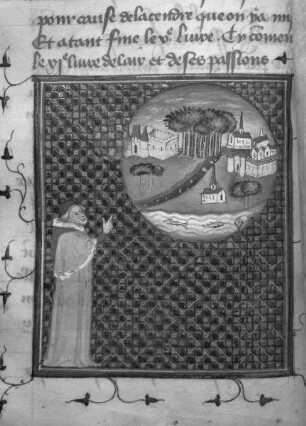 pour cause de la cendre que on y a mis
Et atant fine le v^e livre. Cy commen
le vi^e livre de lair et de ses passions